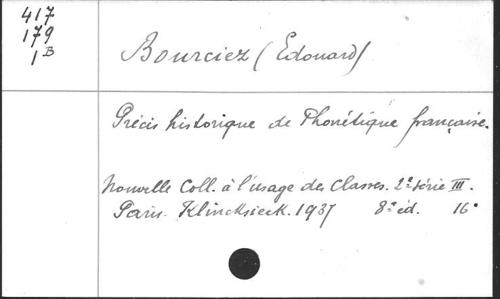 417
179
1B
Bourciez (Edouard)
Précis historique de Phonétique française.
Nouvelle Coll. à l'usage des Classes. 2e série III.
Paris. Klincksieck. 1937 8e éd. 16°